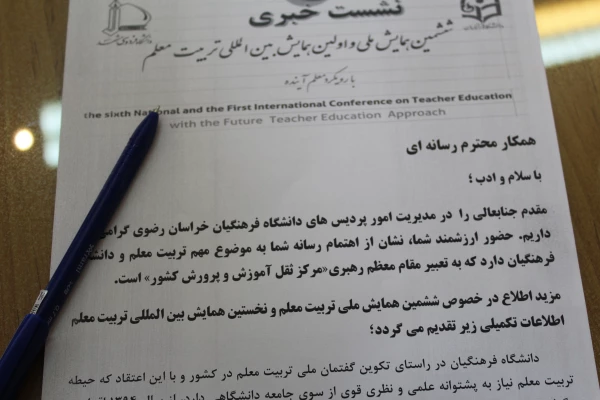 نشست خبری
ششمین همایش ملی و اولین همایش بین المللی تربیت معلم
با رویکرد معلم آینده
the sixth National and the First International Conference on Teacher Education
with the Future Teacher Education Approach
همکار محترم رسانه ای
با سلام و ادب ؛
مقدم جنابعالی را در مدیریت امور پردیس های دانشگاه فرهنگیان خراسان رضوی گرامی
داریم. حضور ارزشمند شما، نشان از اهتمام رسانه شما به موضوع مهم تربیت معلم و دانشگاه
فرهنگیان دارد که به تعبیر مقام معظم رهبری«مرکز ثقل آموزش و پرورش کشور» است.
مزید اطلاع در خصوص ششمین همایش ملی تربیت معلم و نخستین همایش بین المللی تربیت معلم
اطلاعات تکمیلی زیر تقدیم می گردد؛
دانشگاه فرهنگیان در راستای تکوین گفتمان ملی تربیت معلم در کشور و با این اعتقاد که حیطه
تربیت معلم نیاز به پشتوانه علمی و نظری قوی از سوی جامعه دانشگاهی دارد، از سال ۱۳۹۴